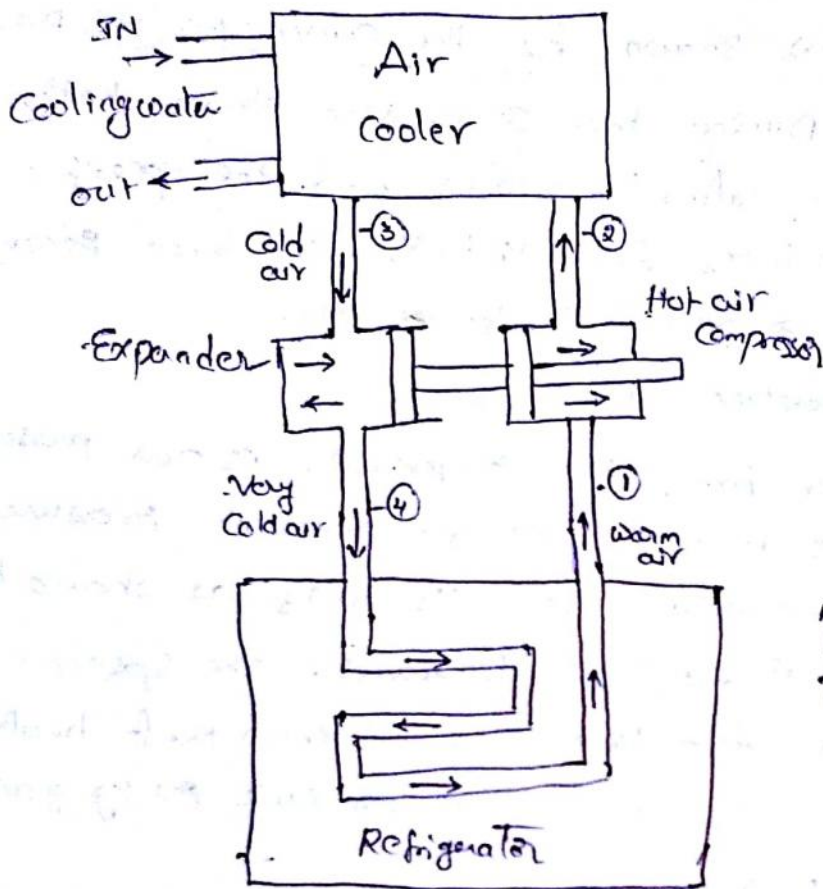 IN
Cooling water
out
Air
cooler
③
②
Cold
air
Hot air
Compressor
Expander
Very
Cold air
④
①
warm
air
Refrigerator